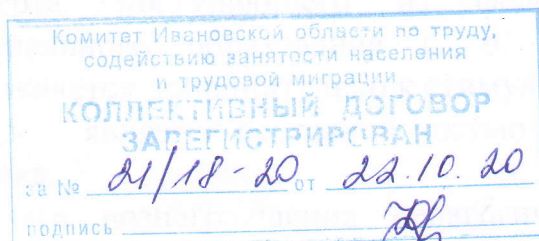 Комитет Ивановской области по труду,
содействию занятости населения
и трудовой миграции
КОЛЛЕКТИВНЫЙ ДОГОВОР
ЗАРЕГИСТРИРОВАН
за № 21/18-20 от 22.10.20
подпись